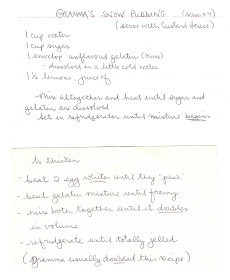 GRAMMA'S SNOW PUDDING (serves 4)
(serve with Custard Sauce)
1 cup water
1 cup sugar
1 envelop unflavoured gelatin (Knox)
- dissolved in a little cold water
1½ lemons, juice of
- Mix altogether and heat until sugar and
gelatin are dissolved
Set in refridgerator until mixture begins
to thicken
- beat 2 egg whites until they 'peak'
- beat gelatin mixture until foamy
- mix both together until it doubles
in volume
- refridgerate until totally jelled
(Gramma usually doubled this recipe)